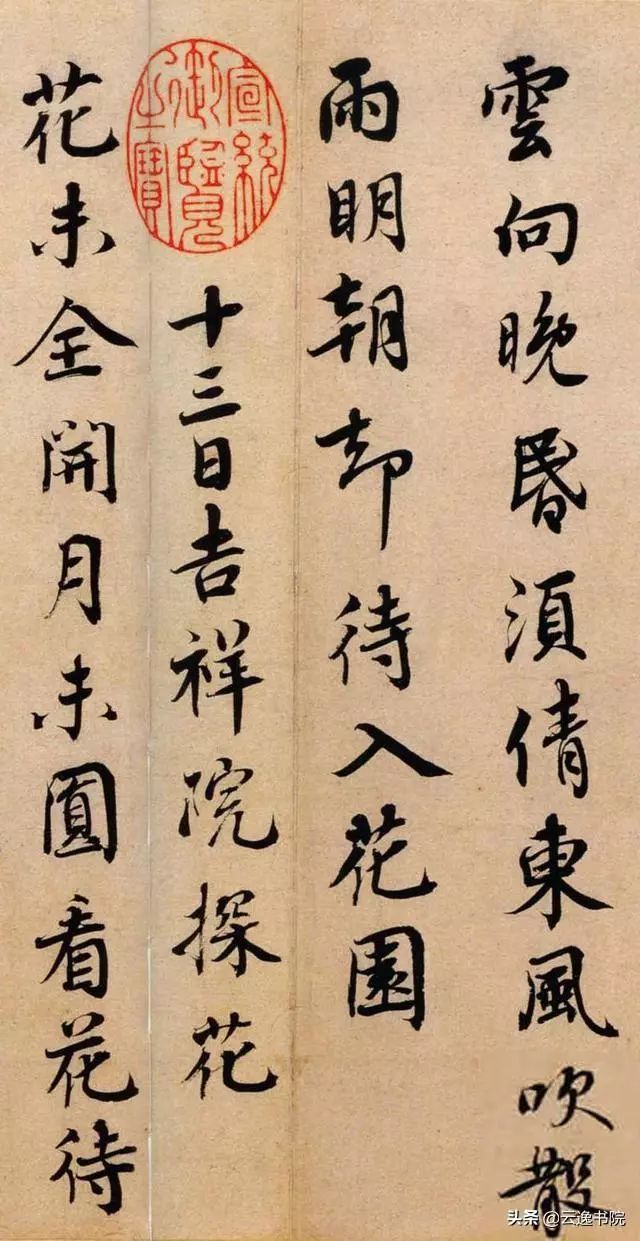 雲向晚昏須倩東風吹散
雨明朝却待入花園
十三日吉祥院探花
花未全開月未圓看花待
宣統御覽之寶
头条 @云逸书院